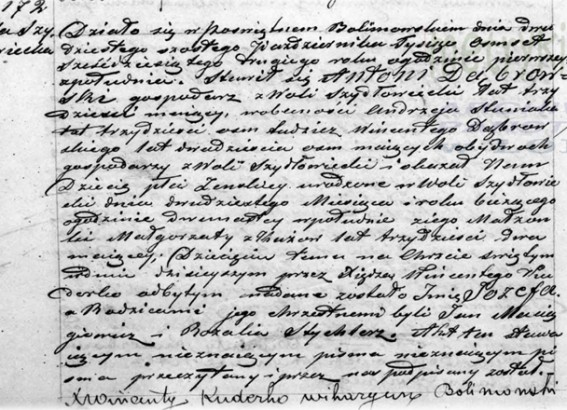 172.
Działo się w Poświętnem Bolimowskiem dnia dwu
Szy dziestego szóstego Października Tysiąc Osmset
wiecka sześćdziesiątego drugiego roku o godzinie pierwszej
z południa. Stawił się Antoni Dąbrow=
ski gospodarz z Woli Szydłowieckii lat trzy
dzieści mający, w obecności Andrzeja Staniaka
lat trzydzieści osm tudzież Wincentego Dąbrow
skiego lat dwadzieścia osm mających obydwóch
gospodarzy z Woli Szydłowieckii i okazał Nam
Dziecię płci Żenskiej urodzone w Woli Szydłowie
ckii dnia dwudziestego Miesiąca i roku bieżącego
o godzinie dwunastej w południe z jego Małżon
ki Małgorzaty z lat trzydzieści dwa
mającej. Dziecięciu temu na Chrzcie świętym
w dniu dzisiejszym przez Xiędza Wincentego Ku
derko odbytym nadane zostało Imię Józefa
a Rodzicami jego chrzestnemi byli Jan Macią
giewicz i Rozalia Stychlerz. Akt ten Stawa
jącym nieznającym pisma nieznającym pi
sma przeczytany i przez nas podpisany został.
X Wincenty Kuderko wikaryusz Bolimowski